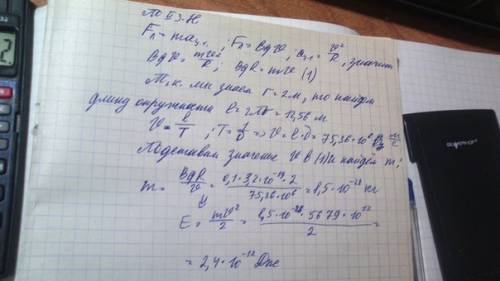 По II З.Н
Fл = maц.с. ; Fл = Bqv ; aц.с = v²/R, значит
Bqv = mv²/R ; BqR = mv (1)
Т.к. мы знаем r = 2м, то найдём
длину окружности l = 2πr = 12,56 м
v = l/T ; T = 1/ν => v = l·ν = 75,36·10⁶ м/с
Подставим значение v в (1) и найдём m:
m = BqR/v = 0,1·3,2·10⁻¹⁹·2/75,36·10⁶ = 8,5·10⁻²⁸ кг
E = mv²/2 = 8,5·10⁻²⁸·5679·10¹²/2 =
= 2,4·10⁻¹² Дж